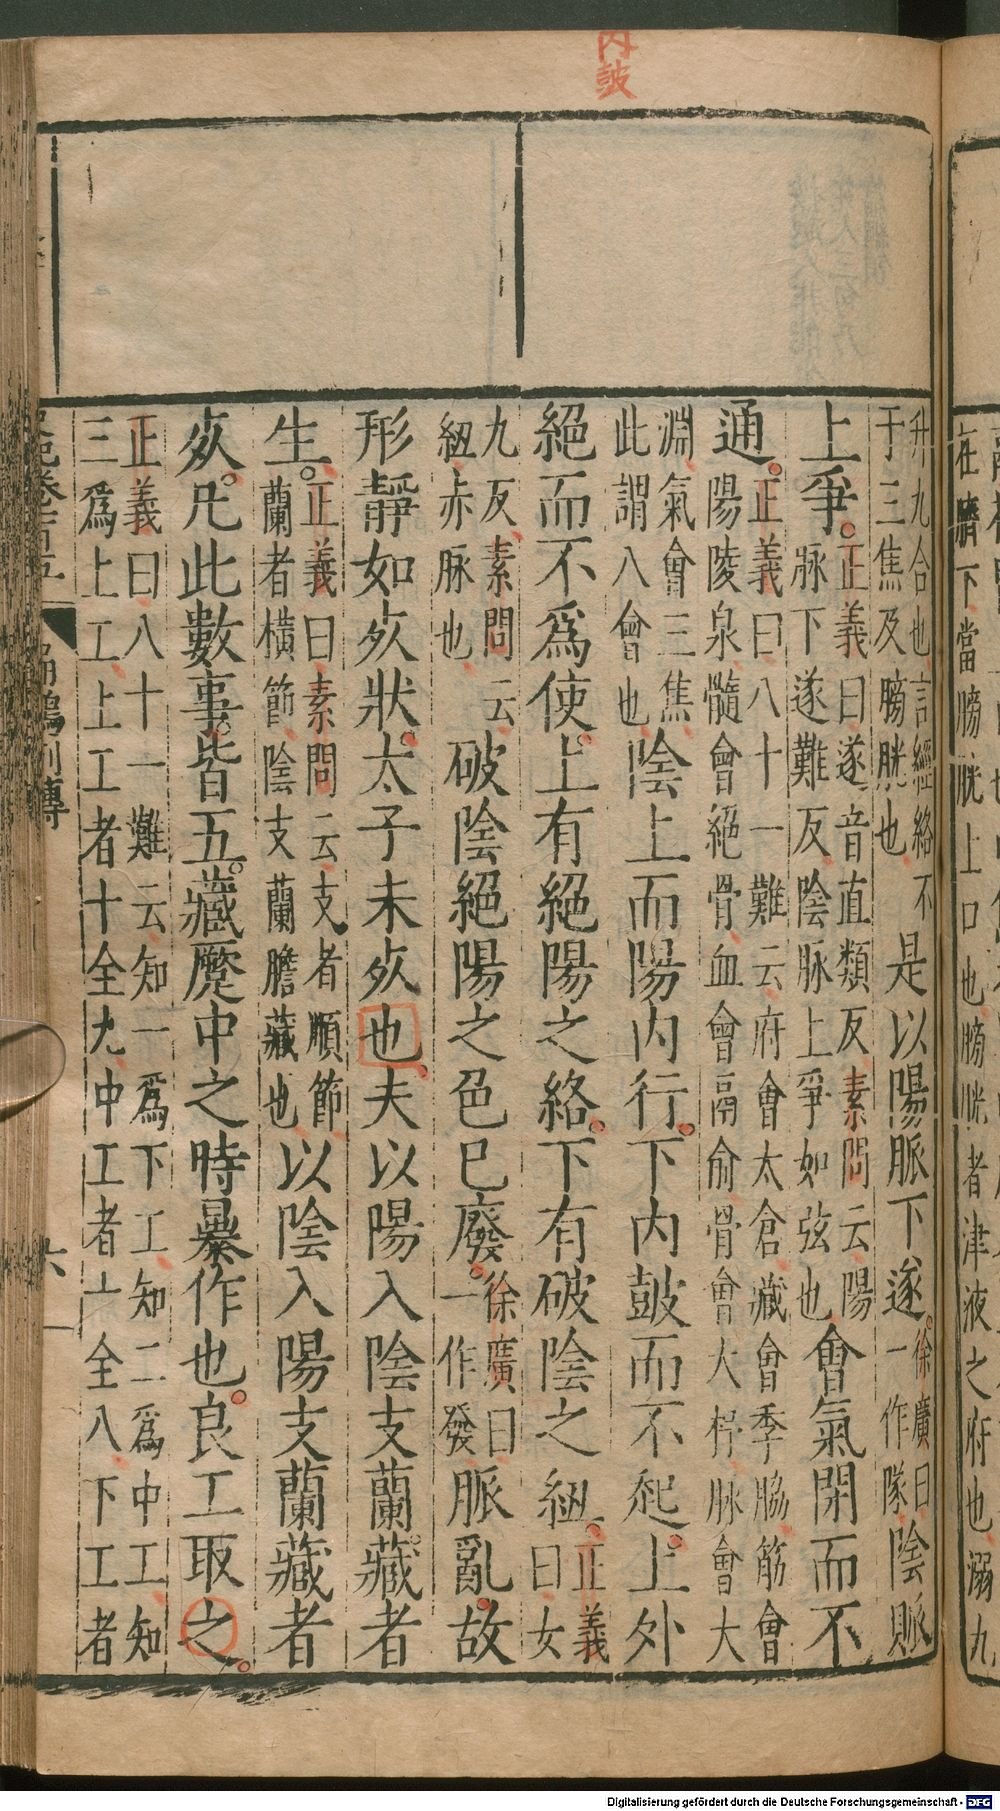 内鼓
升九合也言經絡不
于三焦及膀胱也
是以陽脈下遂
徐廣曰
一作隊
陰脈
上爭
正義曰遂音直類反素問云陽
脉下遂難反陰脉上爭如弦也
會氣閉而不
通
正義曰八十一難云府會太倉藏會季脇筋會
陽陵泉髓會絕骨血會鬲俞骨會大杼脉會大
淵氣會三焦
此謂八會也
陰上而陽内行下内鼓而不起上外
絕而不爲使上有絕陽之絡下有破陰之紐
正義
曰女
九反素問云
紐赤脉也
破陰絕陽之色已廢
徐廣曰
一作發
脈亂故
形靜如死狀太子未死也夫以陽入陰支蘭藏者
生
正義曰素問云支者順節
蘭者橫節陰支蘭膽藏也
以陰入陽支蘭藏者
死凡此數事皆五藏蹷中之時暴作也良工取之
正義曰八十一難云知一爲下工知二爲中工知
三爲上工上工者十全九中工者十全八下工者
六
在臍下當膀胱上口也膀胱者津液之府也溺九
Digitalisierung gefördert durch die Deutsche Forschungsgemeinschaft - DFG